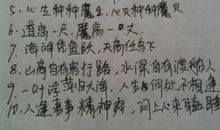 5.心生种种魔生,心灭种种魔灭
6.道高一尺,魔高一丈
7.海阔凭鱼跃,天高任鸟飞
8.山高自有客行路,水深自有渡船人
9.一叶浮萍归大海,人生何处不相逢
10.人逢喜事精神爽,闷上心来瞌睡